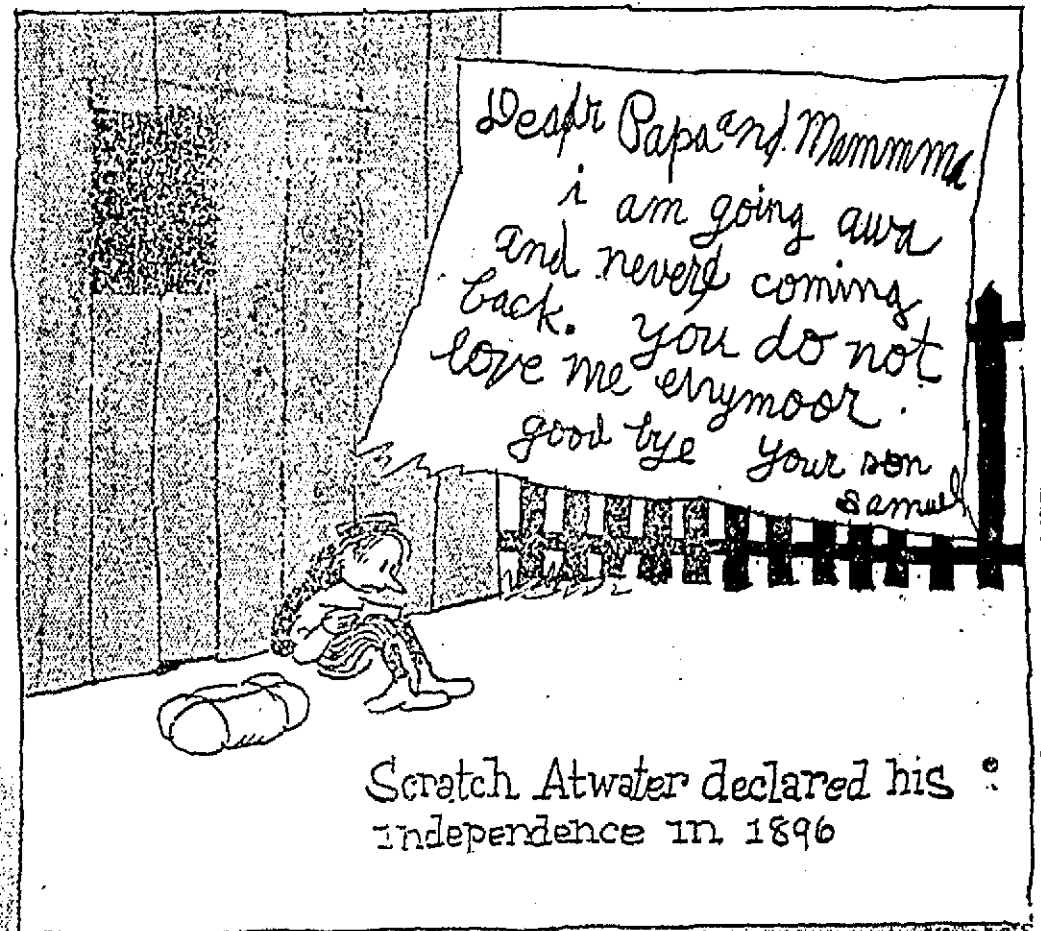 Dear Papa and Mammma
i am going awa
and never coming
back. you do not
love me enymoor.
good bye your son
samuel
Scratch Atwater declared his
independence in 1896